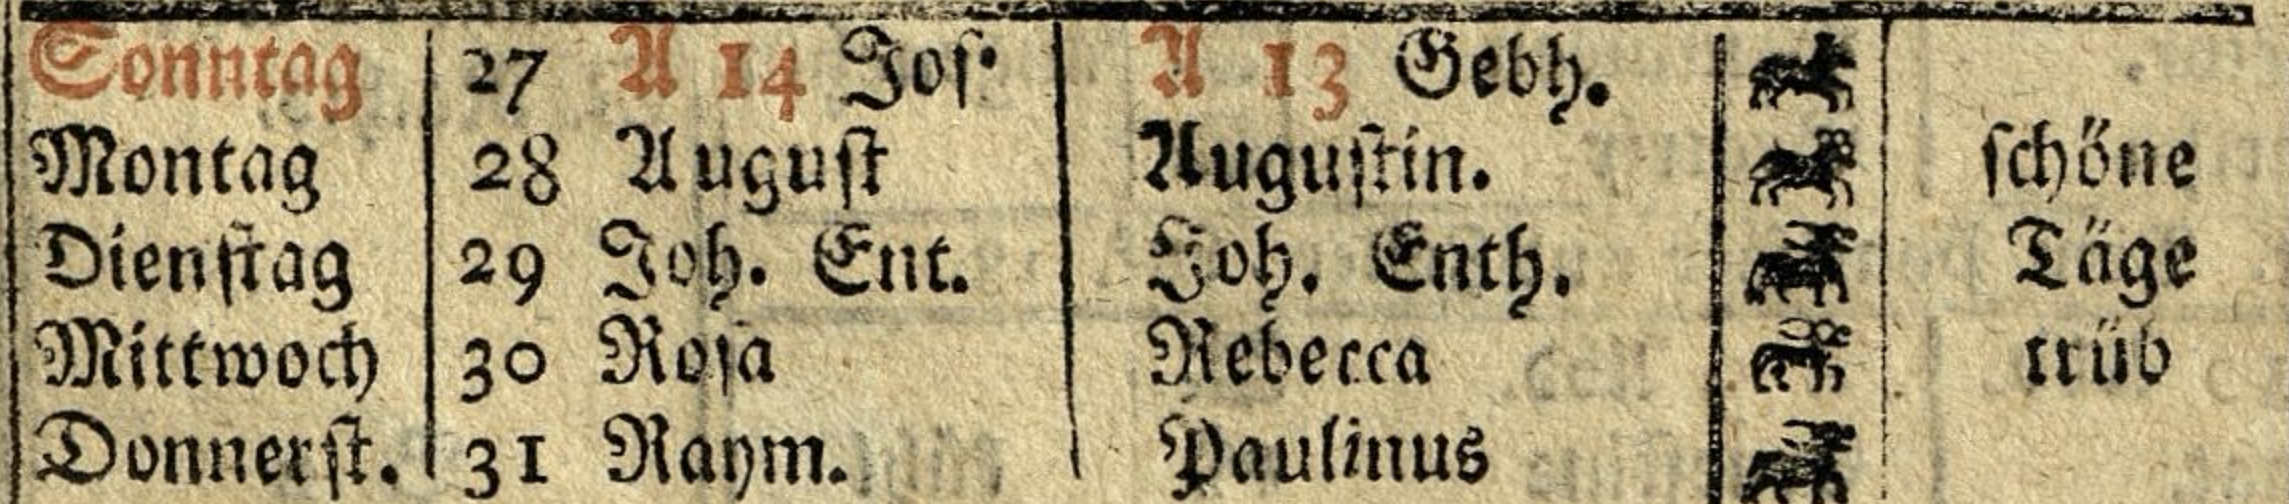 Sonntag 27 A 14 Joſ. A 13 Gebh.
Montag 28 Auguſt Auguſtin. ſchöne
Dienſtag 29 Joh. Ent. Joh. Enth. Täge
Mittwoch 30 Roſa Rebecca trüb
Donnerſt. 31 Raym. Paulinus